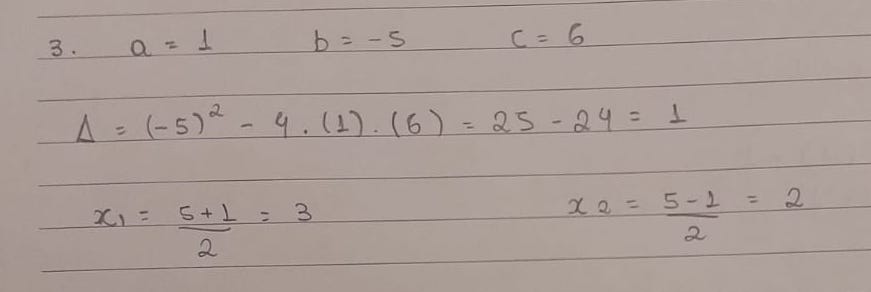 3. a = 1 b = -5 c = 6
Δ = (-5)² - 4 . (1) . (6) = 25 - 24 = 1
x₁ = (5+1)/2 = 3 x₂ = (5-1)/2 = 2